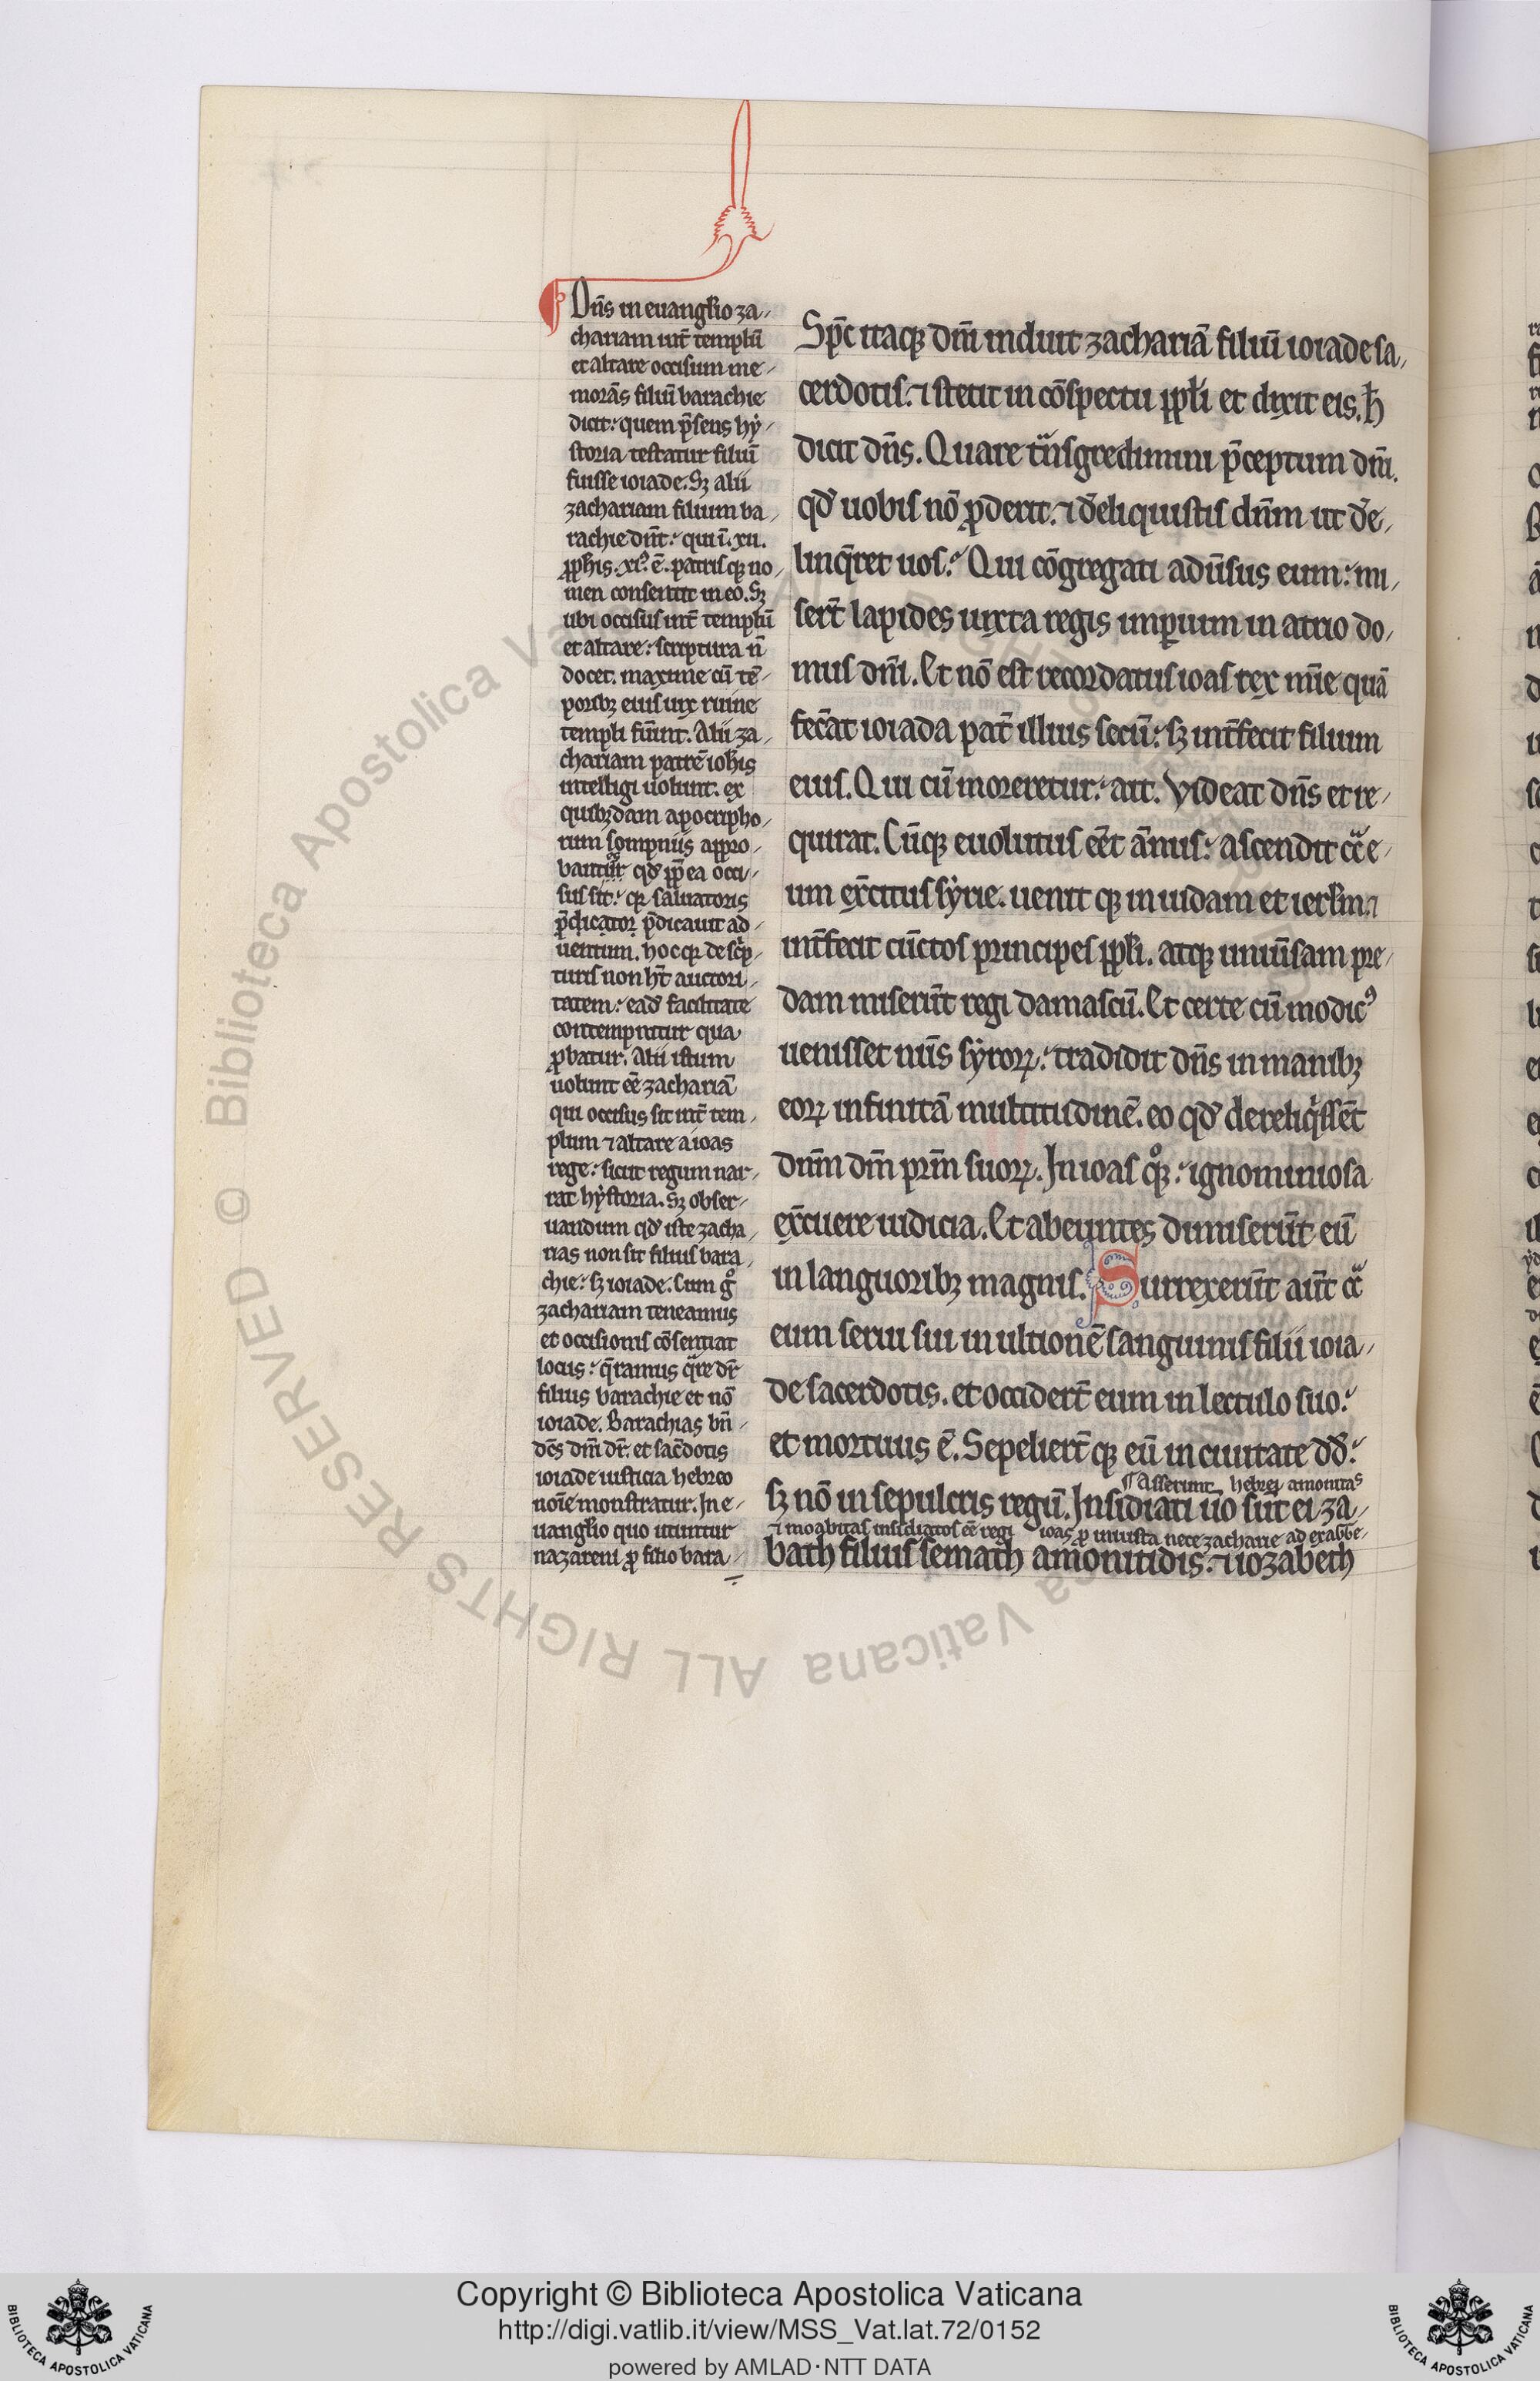 Dn̄s in euangl̄io za-
chariam int̄ templū
et altare occisum me-
morās filiū barachie
dicit: quem p̄sens hẏ-
storia testatur filiū
fuisse ioiade. Sꝫ alii
zachariam filium ba-
rachie dn̄t: qui ī .xii.
ꝓph̄is .xiᵒ. ē. patrisqꝫ no-
men consentit in eo. Sꝫ
ubi occisus int̄ templū
et altare: scriptura n̄
docet. maxime cū tē-
poribꝫ eius uix ruine
templi fūint. Alii za-
chariam patrē ioh̄is
intelligi uolunt. ex
quibꝫdam apocripho-
rum sompniis appro-
bant qd̄ ꝓpt̄ea occi-
sus sit: qꝛ saluatoris
p̄dicauit ad-
uentum. hoc qꝛ de sc̄p-
turis non ht̄ auctori-
tatem: ead̄ facilitate
contempnitur qua
ꝓbatur. Alii istum
uolunt ēē zachariā
qui occisus sit int̄ tem-
plum ⁊ altare a ioas
rege: sicut regum nar-
rat hẏstoria. Sꝫ obser-
uandum qd̄ iste zacha-
rias non sit filius bara-
chie: sꝫ ioiade. Cum gͦ
zachariam teneamus
et occisionis cōsentiat
locus: q̄ramus qͣre dr̄
filius barachie et nō
ioiade. Barachias bn̄-
dc̄s dn̄i dr̄. et sac̄dotis
ioiade iusticia hebreo
noīe monstratur. In e-
uangl̄io quo utuntur
nazareni ꝓ filio bara-
Sp̄c itaqꝫ dn̄i induit zachariā filiū ioiade sa-
cerdotis. ⁊ stetit in cōspectu ppl̄i et dixit eis. h̄
dicit dn̄s. Quare tͣnsgredimini p̄ceptum dn̄i.
qd̄ uobis nō ꝓderit. ⁊ d̄eliquistis dn̄m ut d̄e-
linq̄ret uos: Qui cōgregati adūsus eum: mi-
sert̄ lapides iuxta regis imꝑium in atrio do-
mus dn̄i. Et nō est recordatus ioas rex mīe quā
fec̄at ioiada pat̄ illius secū: sꝫ int̄fecit filium
eius. Qui cū moreretur: ait. Videat dn̄s et re-
quirat. Cūqꝫ euolutus eēt ānus: ascendit cͣ e-
um ex̄citus sẏrie. uenit qꝫ in iudam et ierl̄m. ⁊
int̄fecit cūctos principes ppl̄i. atqꝫ uniūsam pre-
dam miserūt regi damascū. Et certe cū modicꝰ
uenisset nūs sẏroꝝ: tradidit dn̄s in manibꝫ
eoꝝ infinitā multitudinē. eo qd̄ dereliq̇ssēt
dn̄m dm̄ prm̄ suoꝝ. In ioas qͦqꝫ: ignominiosa
ex̄cuere iudicia. Et abeuntes dimiserūt eū
in languoribꝫ magnis. Surrexerūt aūt cͣ
eum serui sui in ultionē sanguinis filii ioia-
de sacerdotis. et occidert̄ eum in lectulo suo:
et mortuus ē. Sepeliert̄ qꝫ eū in ciuitate dd̄:
¶ Asserunt hebrei amonitas
sꝫ nō in sepulcris regū. Insidiati uō sūt ei za-
⁊ moabitas insidiatos eē regi ioas ꝓ iniusta nece zacharie ad exabbe-
bath filius semath amonitidis. ⁊ iozabeth
© Biblioteca Apostolica Vaticana ALL RIGHTS RESERVED
Copyright © Biblioteca Apostolica Vaticana
http://digi.vatlib.it/view/MSS_Vat.lat.72/0152
powered by AMLAD·NTT DATA
BIBLIOTECA APOSTOLICA VATICANA
BIBLIOTECA APOSTOLICA VATICANA